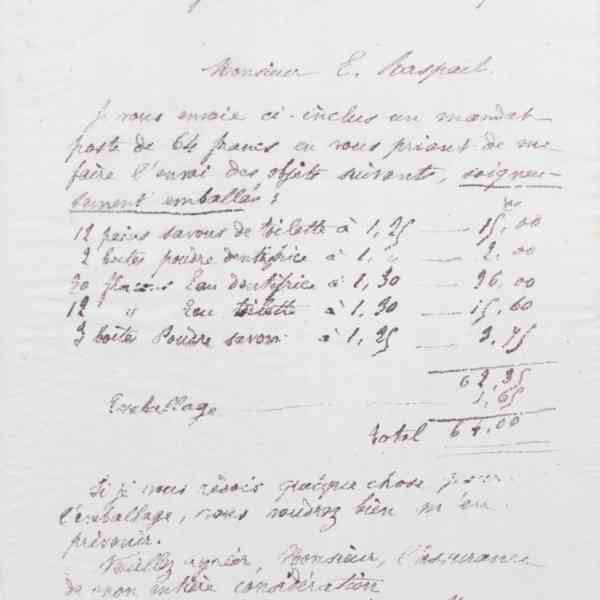 Monsieur E. Raspail.
Je vous envoie ci-inclus un mandat
poste de 64 francs en vous priant de me
faire l'envoi des objets suivants, soigneu-
sement emballés :
12 pains savons de toilette à 1,25 — 15,00
2 boites poudre dentifrice à 1, " — 2,00
20 flacons Eau dentifrice à 1,30 — 26,00
12 " Eau toilette à 1,30 — 15,60
3 boites Poudre savon à 1,25 — 3,75
62,35
Emballage — 1,65
Total 64,00
Si je vous redois quelque chose pour
l'emballage, vous voudrez bien m'en
prévenir.
Veuillez agréer, Monsieur, l'assurance
de mon entière considération